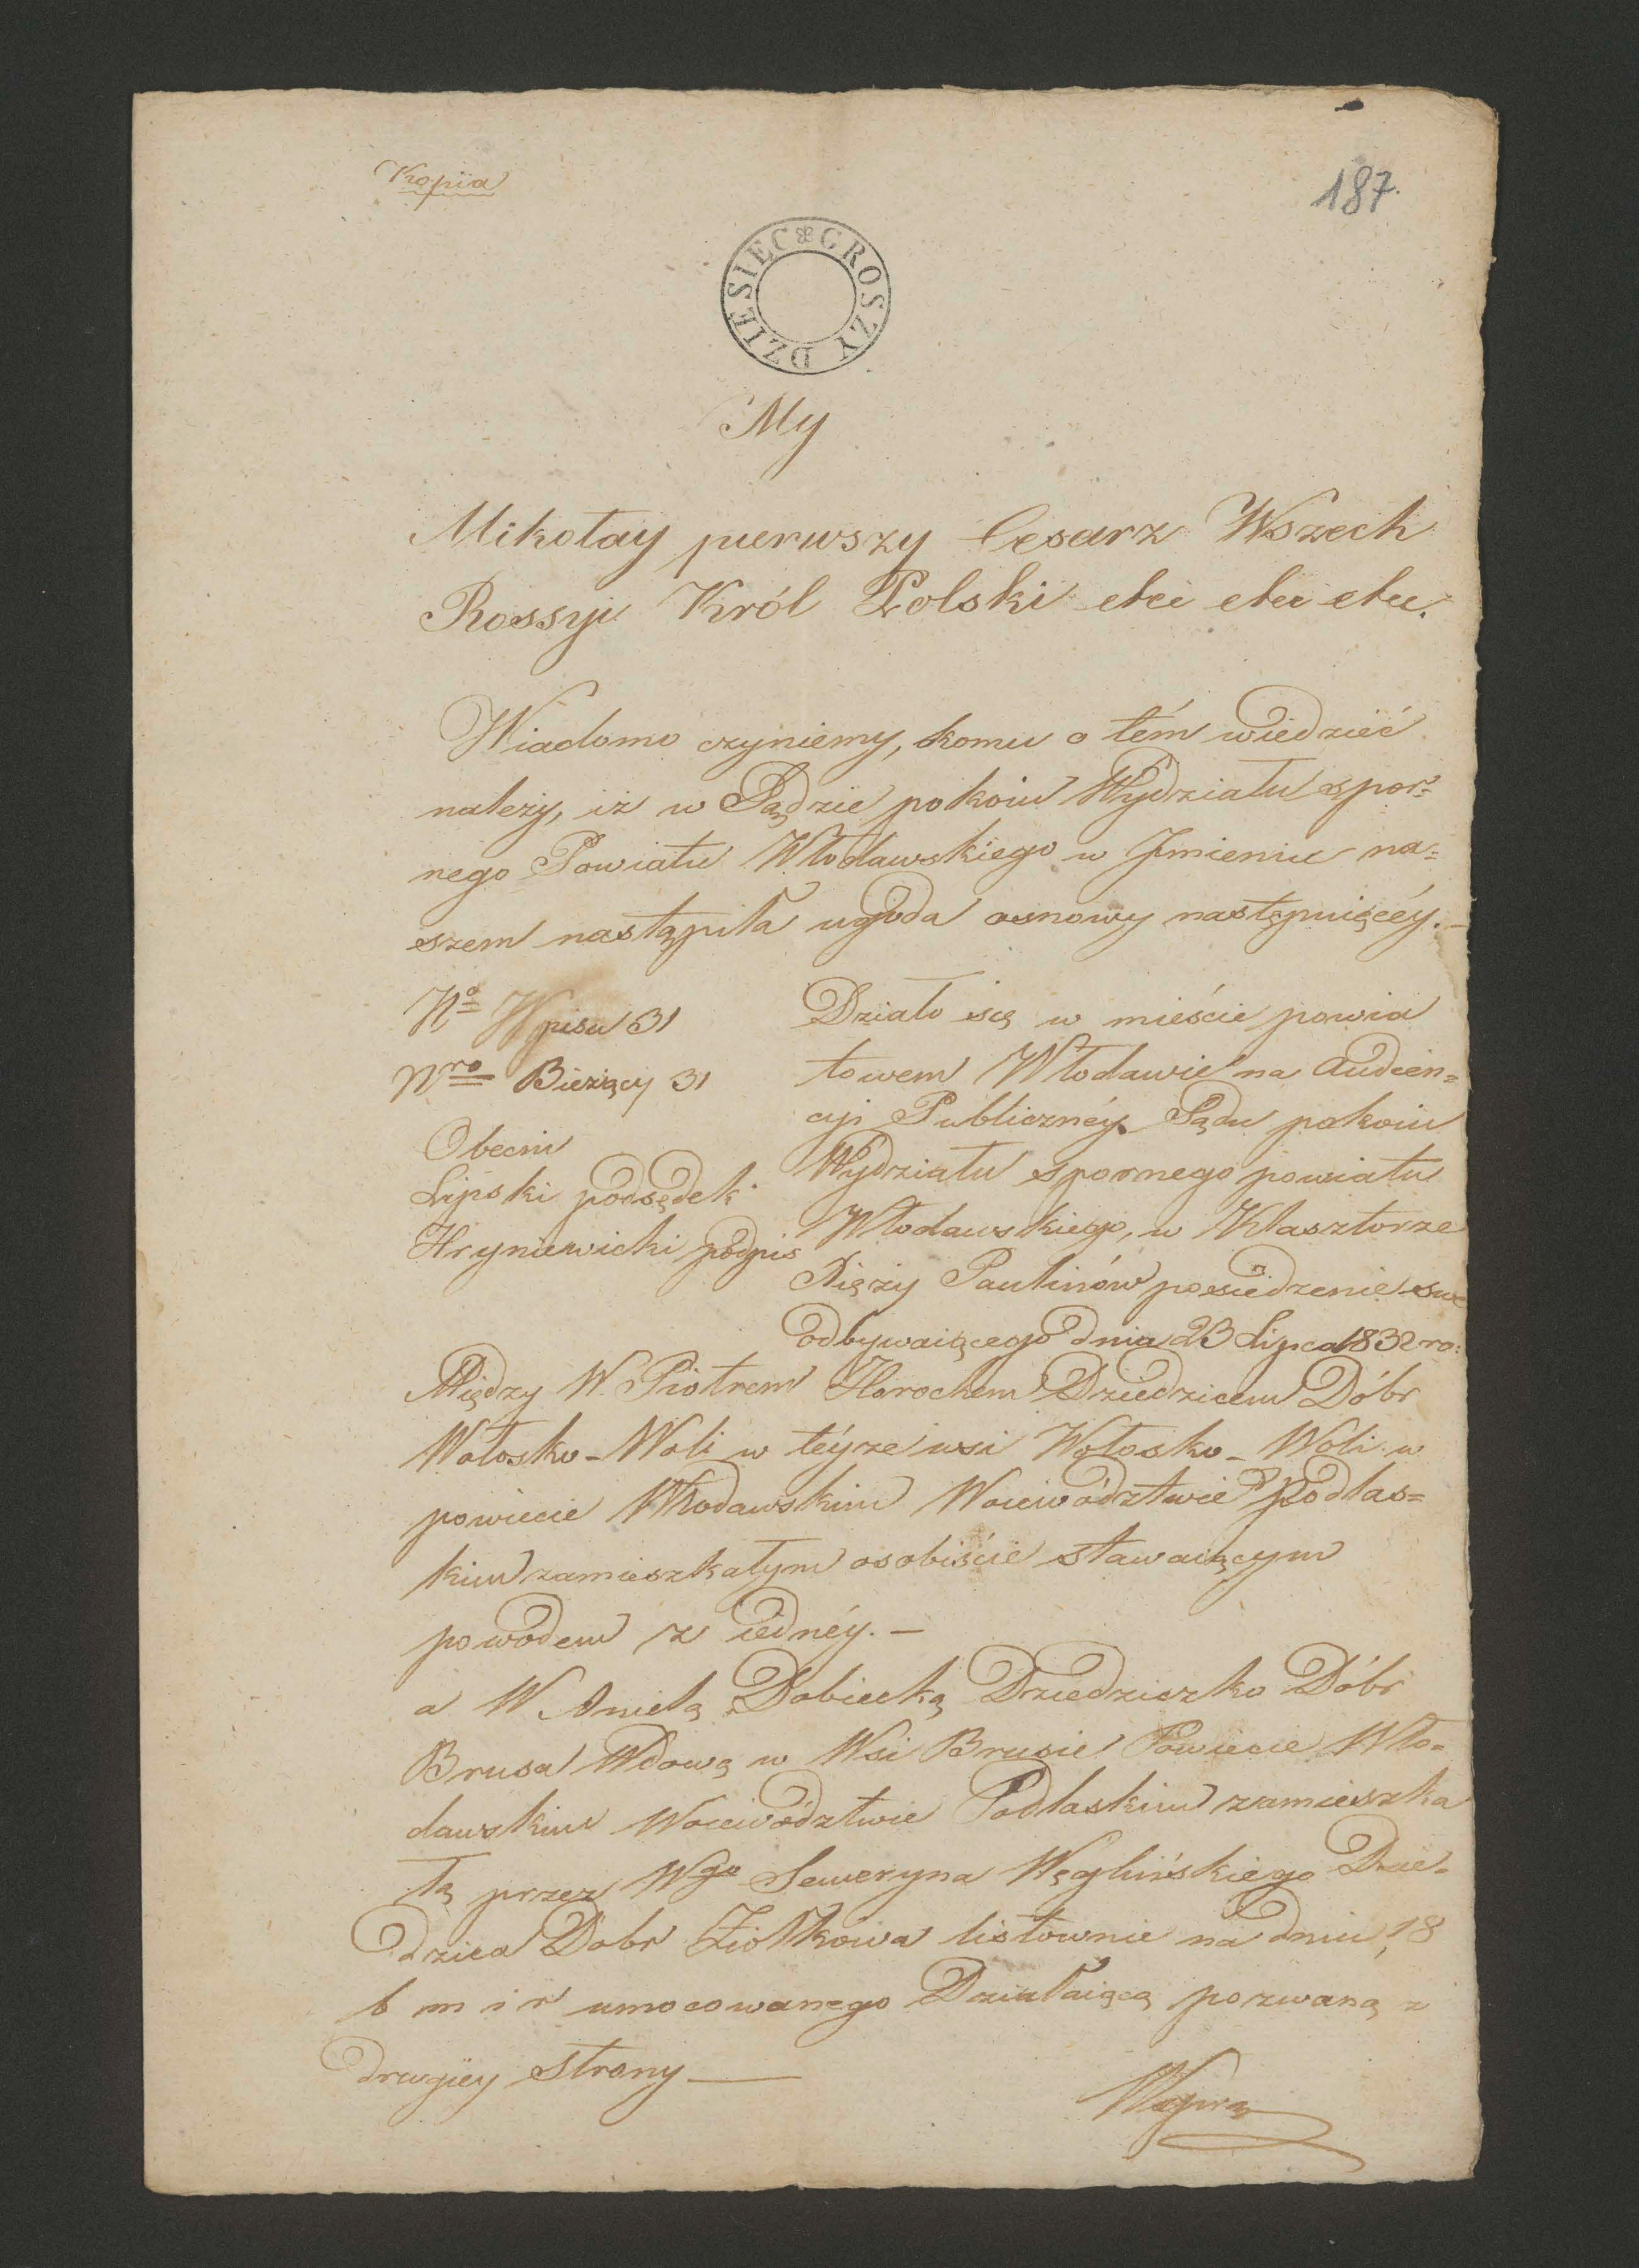 Kopia
187.
DZIESIEC GROSZY
My
Mikołay pierwszy Cesarz Wszech
Rossyi Król Polski etce etce etce.
Wiadomo czyniemy, komu o tém wiedzieć
należy, iż w Sądzie pokoiu Wydziału spor=
nego Powiatu Włodawskiego w Jmieniu na=
szem nastąpiła ugoda osnowy następuiącéy.—
No Wpisu 31
Nro Bieżący 31
Obecni
Lipski podsędek
Hryniewicki podpis
Działo się w mieście powia
towem Włodawie na Audien=
cyi Publicznéy Sądu pokoiu
Wydziału spornego powiatu
Włodawskiego, w Klasztorze
Xięży Paulinów posiedzenie swe
odbywaiącego dnia 23 Lipca 1832 ro:
Między W. Piotrem Horochem Dziedzicem Dóbr
Wołosko-Woli w téyże wsi Wołosko-Woli w
powiecie Włodawskim Woiewództwie Podlas=
kim zamieszkałym osobiście stawaiącym
powodem z iednéy.—
a W Anielą Dobiecką Dziedziczko Dóbr
Brusa Wdową w Wsi Brusie Powiecie Wło=
dawskim Woiewództwie Podlaskim zamieszka
łą przez Wgo Seweryna Węglińskiego Dzie=
dzica Dobr Ziołkowa listownie na dniu 18
b m i r umocowanego Działaiącą pozwaną z
drugiey strony —